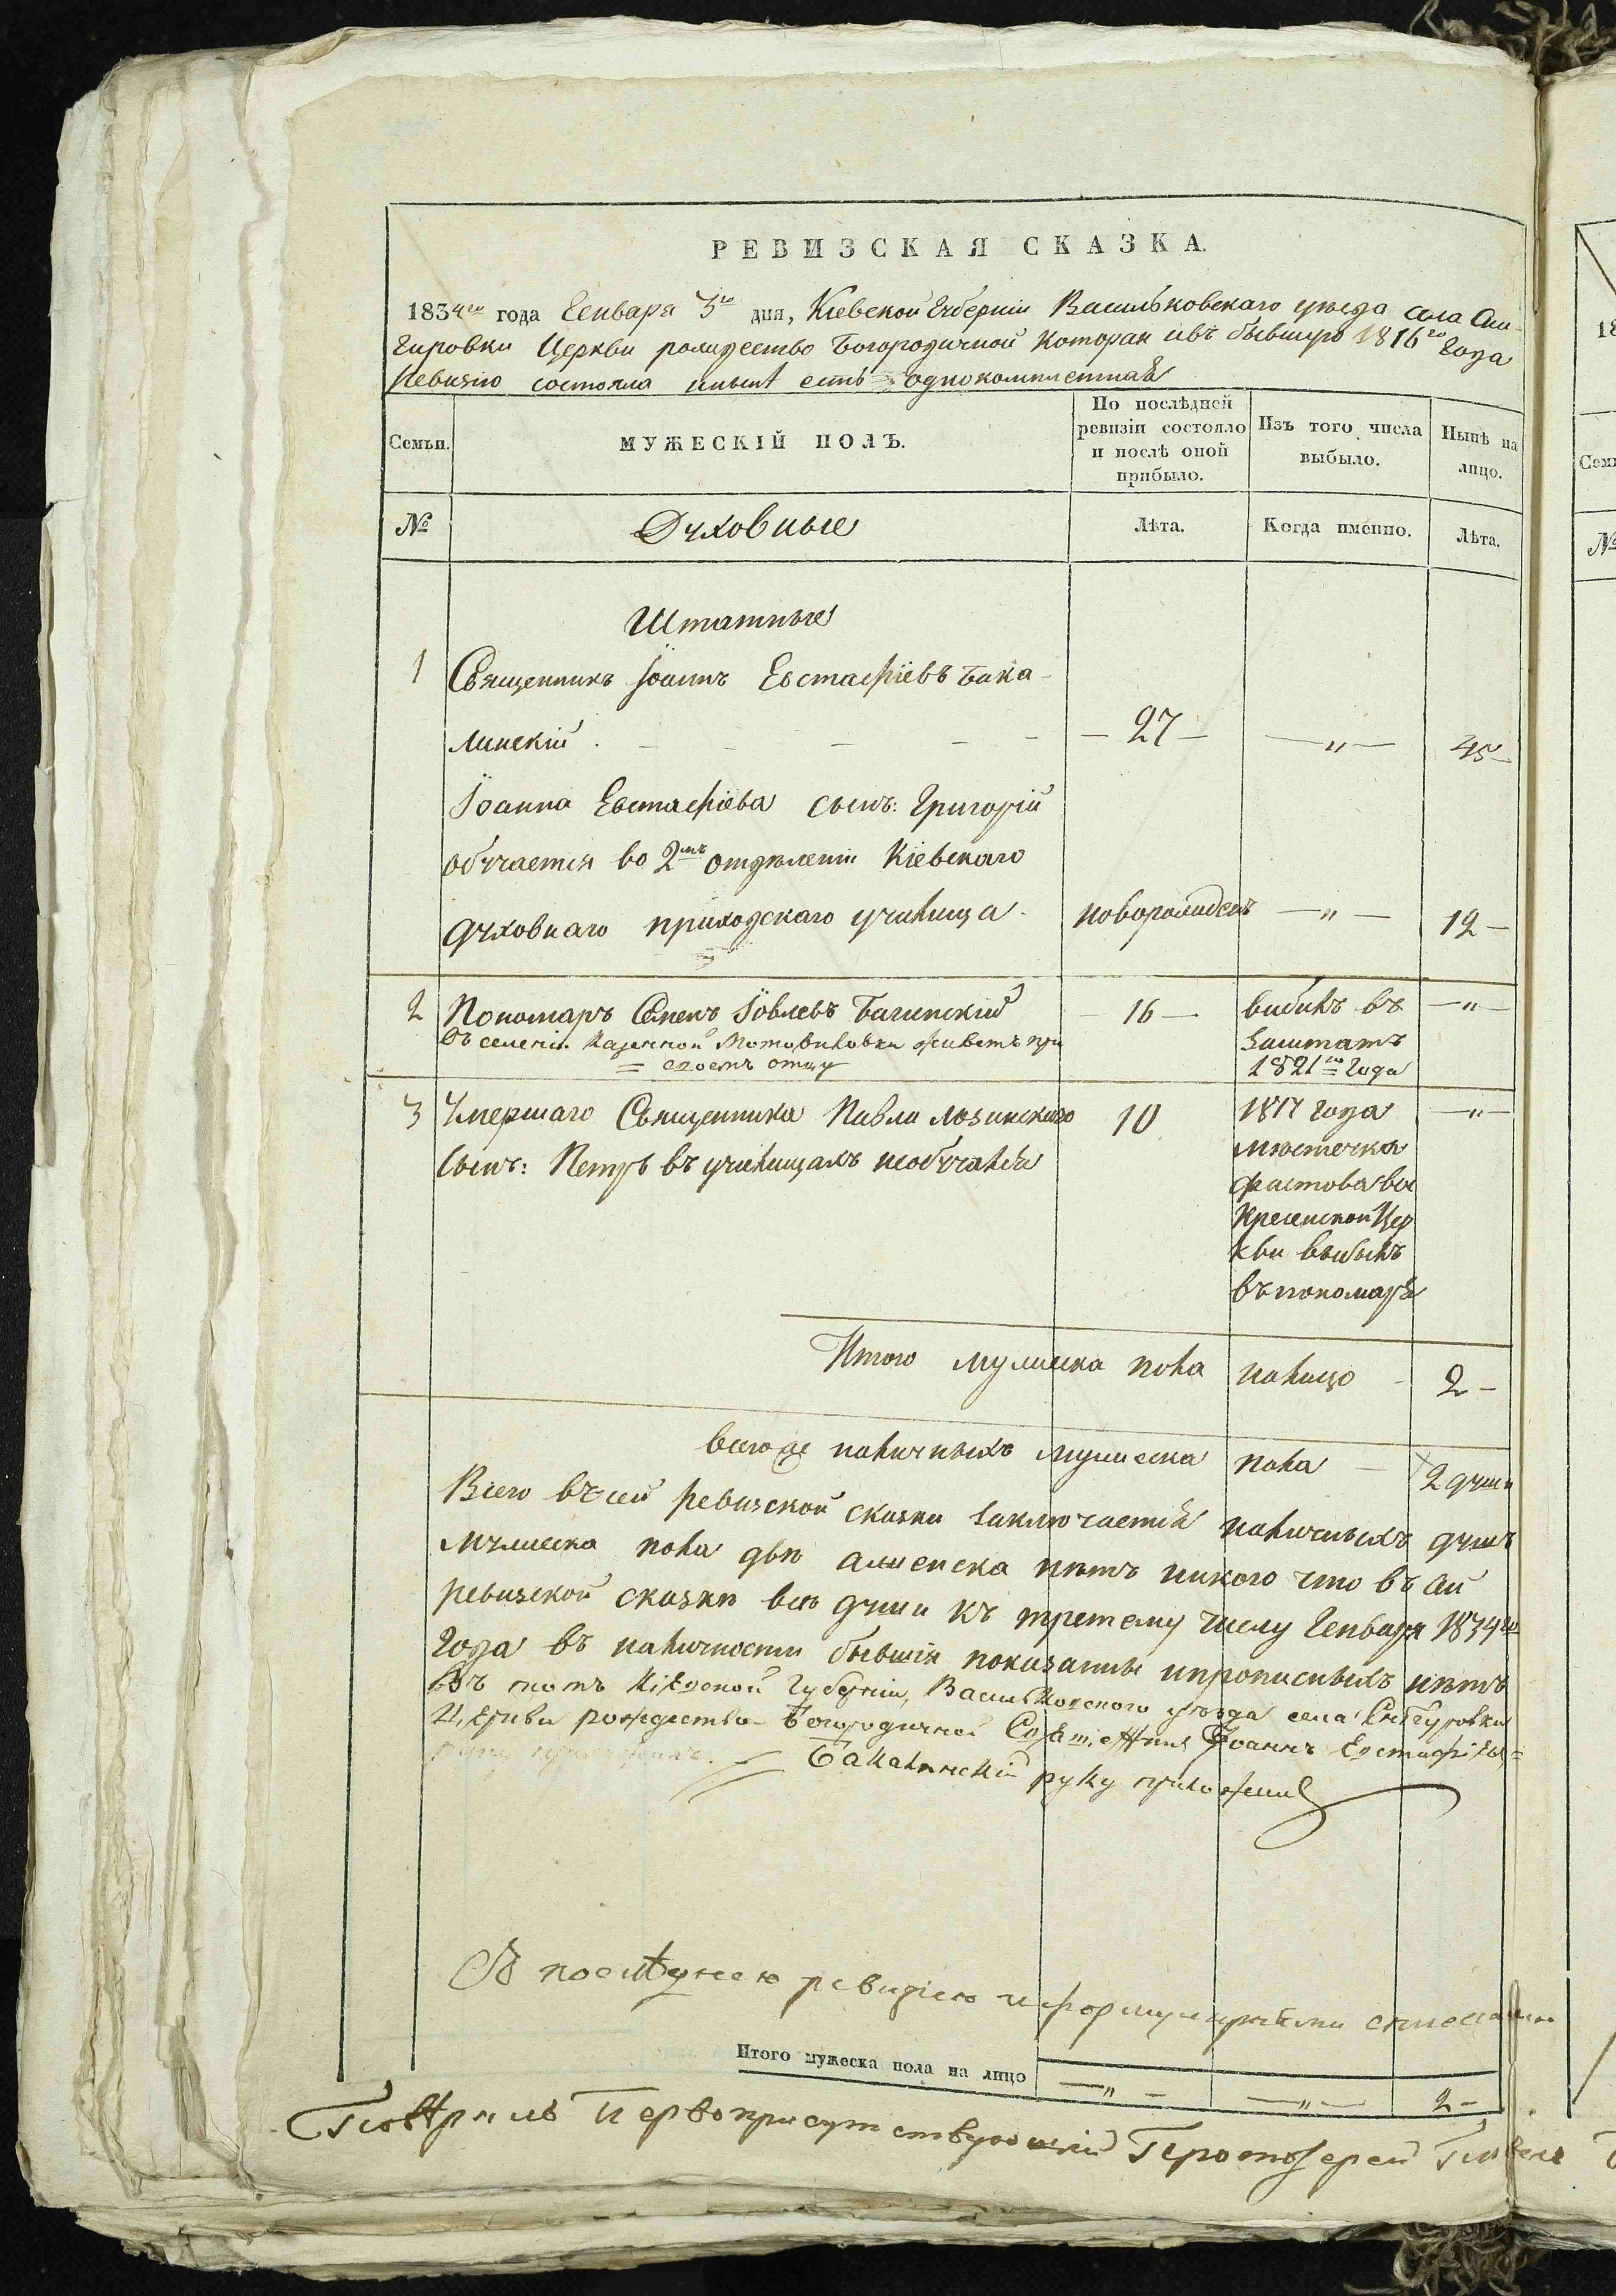 РЕВИЗСКАЯ СКАЗКА.
1834го года Генваря 3го дня, Кіевской Губерніи Васильковскаго уѣзда села Сни-
гировки Церкви рождество Богородичной которая ивъ бывшую 1816го года
Ревизію состояла инынѣ есть однокомплетная
Семьи. МУЖЕСКІЙ ПОЛЪ. По послѣдней ревизіи состояло и послѣ оной прибыло. Изъ того числа выбыло. Нынѣ на лицо.
№ Духовные Лѣта. Когда именно. Лѣта.
Штатные
1 Священникъ Іоаннъ Евстафіевъ Бака-
линскій - - - - - 27 - - „ - 45 -
Іоанна Евстафіева сынъ: Григорій
обучается во 2мъ отдѣленіи Кіевскаго
духовнаго приходскаго училища. новорожденъ - „ - 12 -
2 Пономарь Семенъ Іовлевъ Багинскій - 16 - выбылъ въ - „ -
въ селеніи Казенной Мотовиловки живетъ при заштатъ
= своемъ отцу 1821го года
3 Умершаго Священника Павла Лозинскаго 10 1817 года - „ -
сынъ: Петръ въ училищахъ необучался мѣстечка
Фастова Вос
кресенской Цер
кви выбылъ
въ пономаря
Итого мужеска пола налицо - 2 -
всего же наличныхъ мужеска пола - 2 души
Всего въ сей ревизской сказки заключается наличныхъ душъ
мужеска пола двѣ аженска нѣтъ никого что въ сей
ревизской сказкѣ всѣ души къ третему числу Генваря 1834го
года въ наличности бывшія показанны ипрописныхъ нѣтъ
въ томъ Кіевской Губерніи, Васильковского уѣзда села Снѣгуровки
Церкви рождество-Богородичной Священникъ Іоаннъ Евстафіевъ
Бакалинскій руку приложилъ
Съ послѣднею ревизіею и формулярными списками
Итого мужеска пола на лицо - „ - - „ - 2 -
Повѣрялъ Первоприсутствующій Протоіерей Павелъ